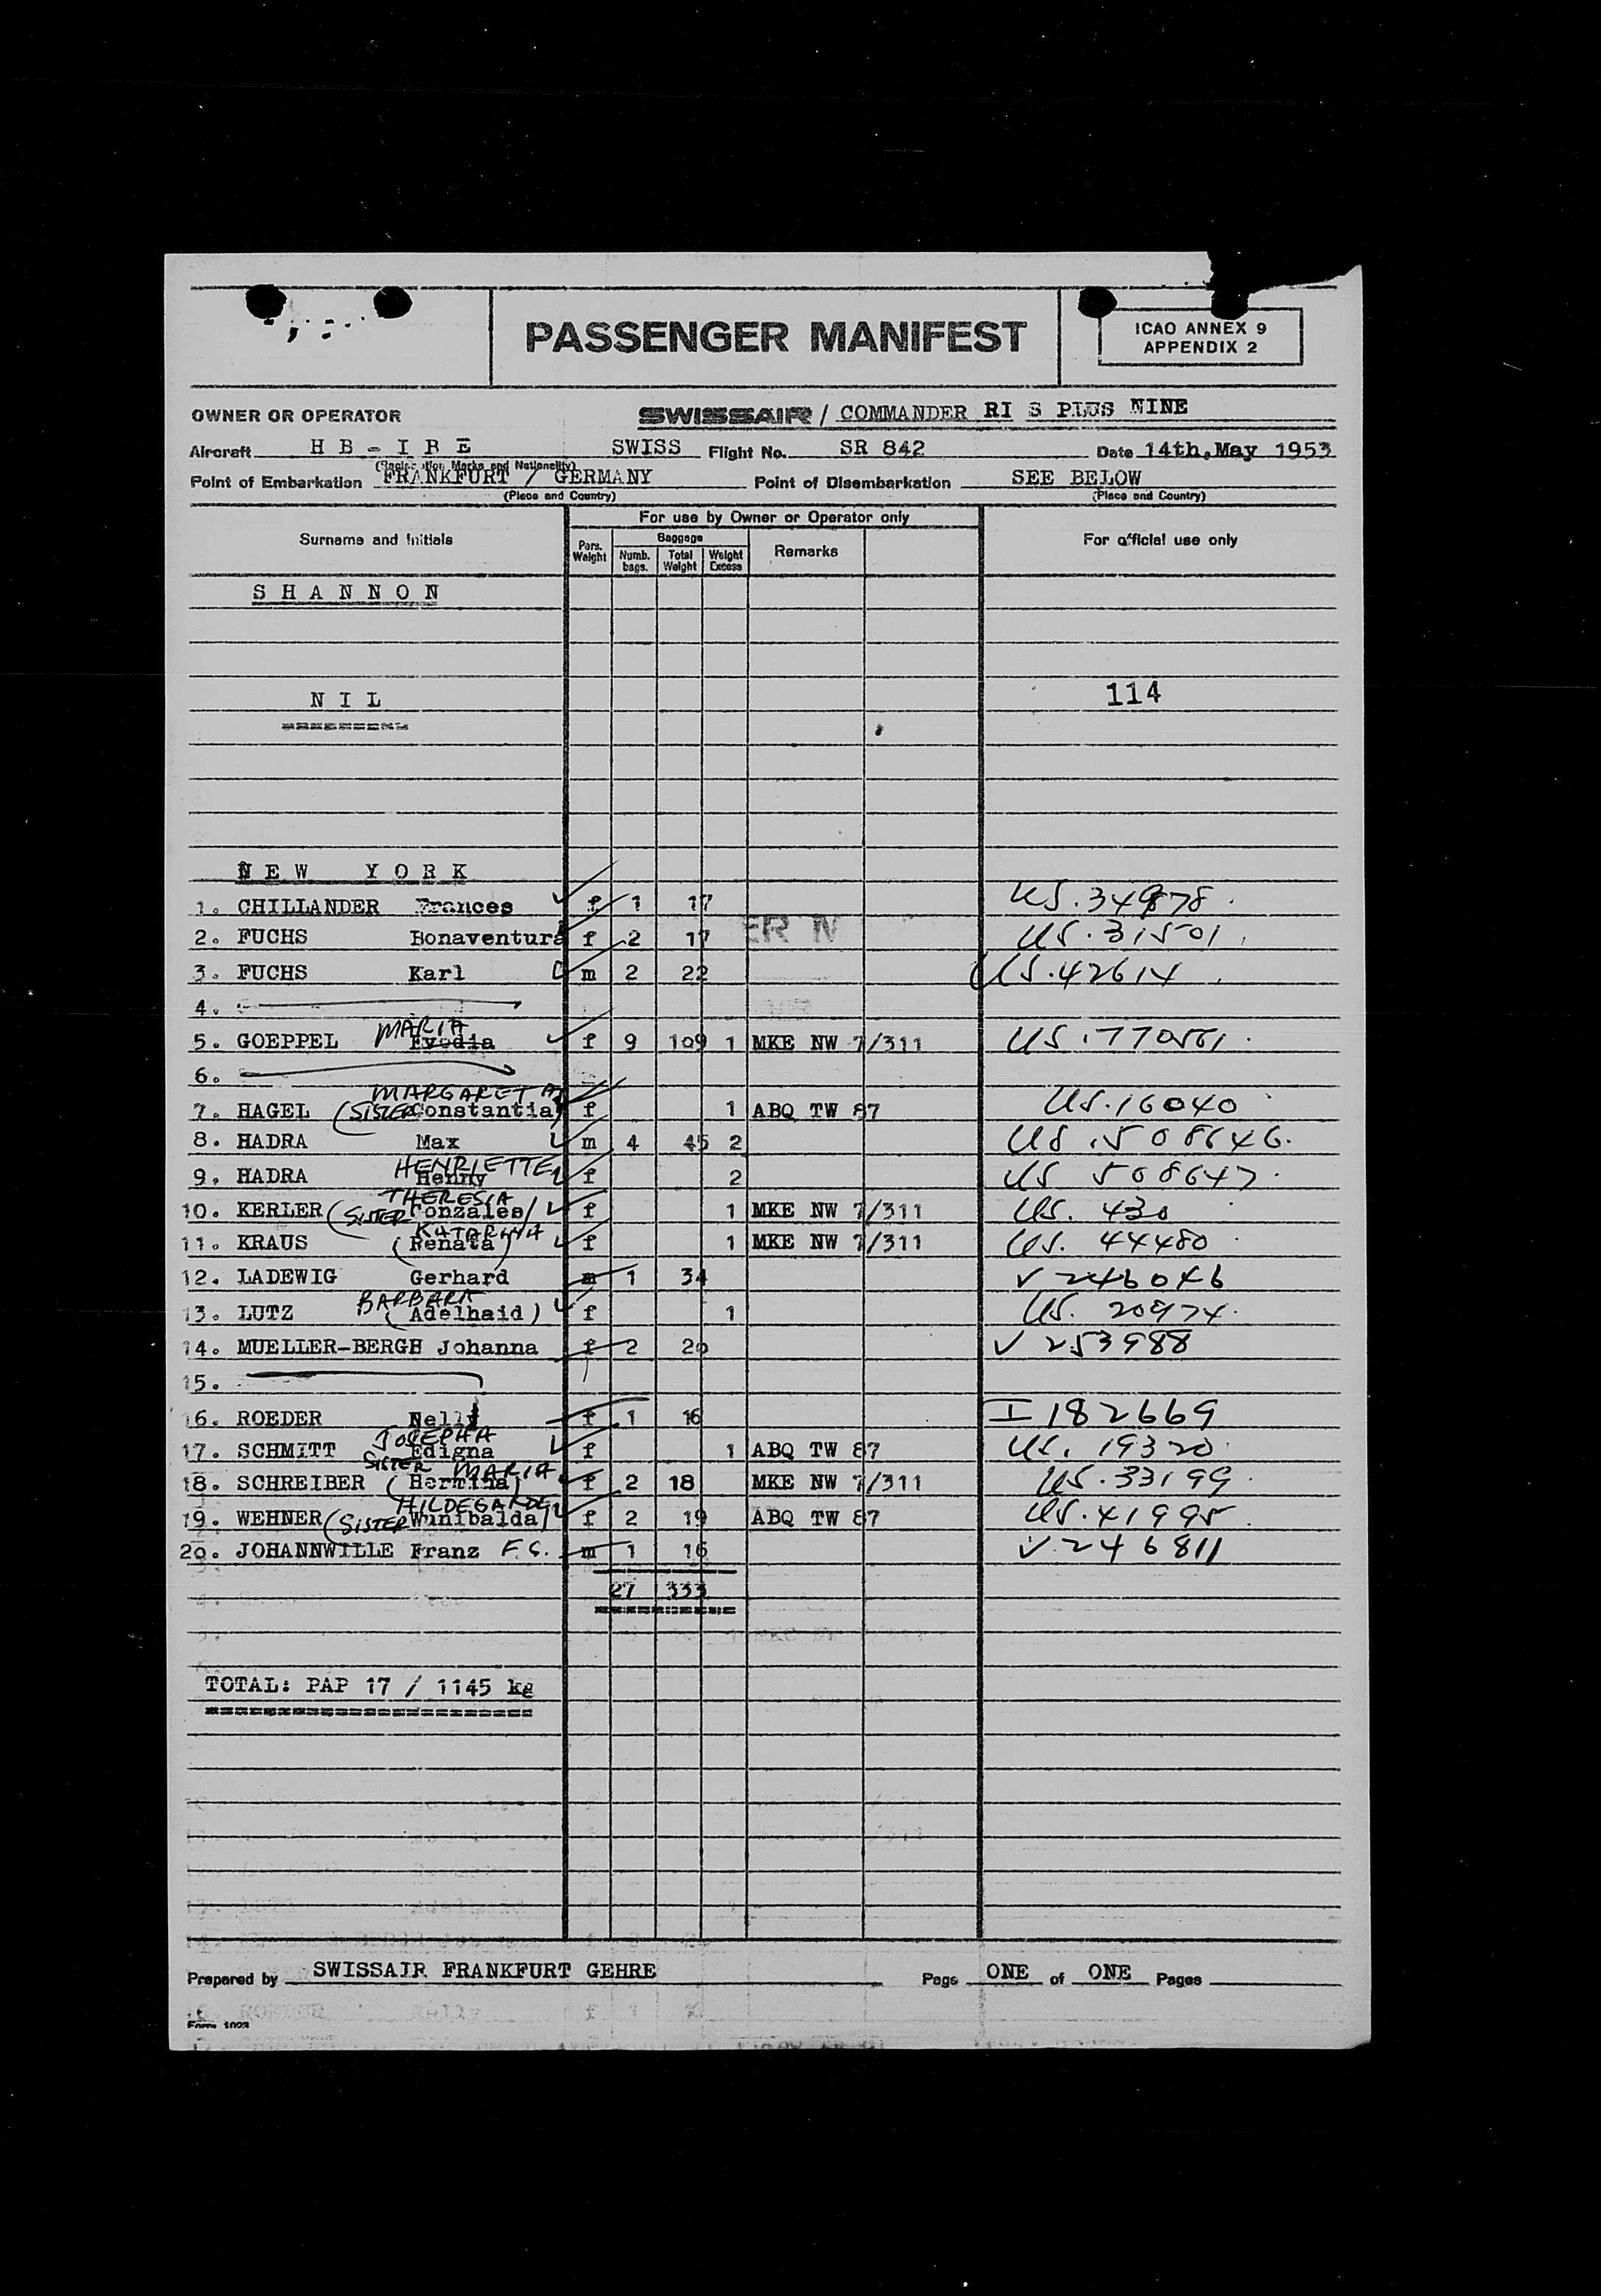 PASSENGER MANIFEST
ICAO ANNEX 9
APPENDIX 2
OWNER OR OPERATOR SWISSAIR / COMMANDER RI S PLUS NINE
Aircraft HB-IBE SWISS Flight No. SR 842 Date 14th.May 1953
(Registration Marks and Nationality)
Point of Embarkation FRANKFURT / GERMANY Point of Disembarkation SEE BELOW
(Place and Country) (Place and Country)
For use by Owner or Operator only
Surname and Initials Pers. Weight Baggage Numb. bags. Total Weight Weight Excess Remarks For official use only
SHANNON
NIL 114
NEW YORK
1. CHILLANDER Frances f 1 17 US.349878.
2. FUCHS Bonaventura f 2 17 US.31501
ER N
3. FUCHS Karl m 2 22 US.42614
4.
MARIA
5. GOEPPEL Evodia f 9 109 1 MKE NW 7/311 US.770561.
6.
MARGARETA
7. HAGEL (SISTER Constantia) f 1 ABQ TW 87 US.16040
8. HADRA Max m 4 45 2 US.508646.
HENRIETTE
9. HADRA Henny f 2 US 508647.
THERESIA
10. KERLER (SISTER Gonzales) f 1 MKE NW 7/311 US. 430
KATARINA
11. KRAUS (Renata) f 1 MKE NW 7/311 US. 44480
12. LADEWIG Gerhard m 1 34 V 246046
BARBARA
13. LUTZ (Adelhaid) f 1 US. 20974.
14. MUELLER-BERGH Johanna f 2 20 V 253988
15.
16. ROEDER Nelly f 1 16 I 182669
JOSEPHA
17. SCHMITT Edigna f 1 ABQ TW 87 US. 19320
SISTER MARIA
18. SCHREIBER (Hermina) f 2 18 MKE NW 7/311 US.33199
HILDEGARDE
19. WEHNER (SISTER Wunibalda) f 2 19 ABQ TW 87 US.41995
20. JOHANNWILLE Franz F.G. m 1 16 V 246811
27 333
TOTAL: PAP 17 / 1145 kg
Prepared by SWISSAIR FRANKFURT GEHRE Page ONE of ONE Pages
Form 1023